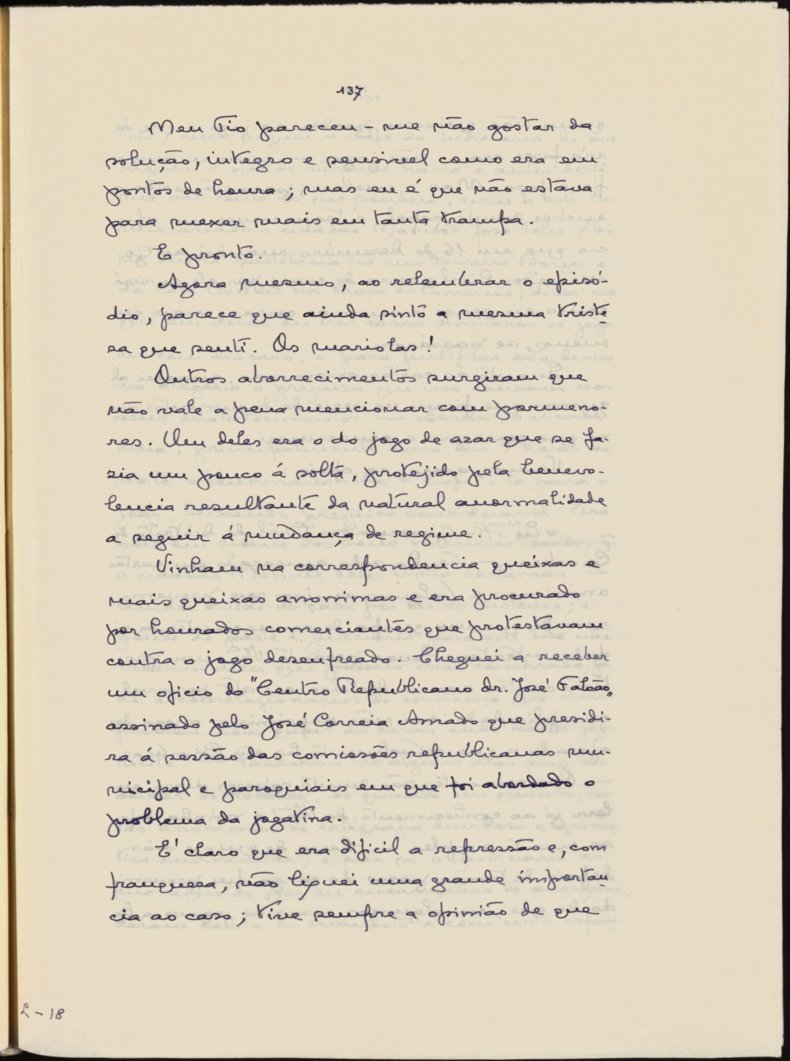 137
Meu Tio pareceu-me não gostar da
solução, integro e sensivel como era em
pontos de honra; mas eu é que não estava
para mexer mais em tanta trampa.
E pronto.
Agora mesmo, ao relembrar o episó-
dio, parece que ainda sinto a mesma triste-
sa que senti. Os mariolas!
Outros aborrecimentos surgiram que
não vale a pena mencionar com pormeno-
res. Um deles era o do jogo de azar que se fa-
zia um pouco á solta, protejido pela benevo-
lencia resultante da natural anormalidade
a seguir á mudança de regime.
Vinham na correspondencia queixas e
mais queixas anonimas e era procurado
por honrados comerciantes que protestavam
contra o jogo desenfreado. Cheguei a receber
um oficio do "Centro Republicano dr. José Falcão"
assinado pelo José Correia Amado que presidi-
ra á sessão das comissões republicanas mu-
nicipal e paroquiais em que foi abordado o
problema da jogatina.
E' claro que era dificil a repressão e, com
franqueza, não liguei uma grande importan-
cia ao caso; tive sempre a opinião de que
2-18